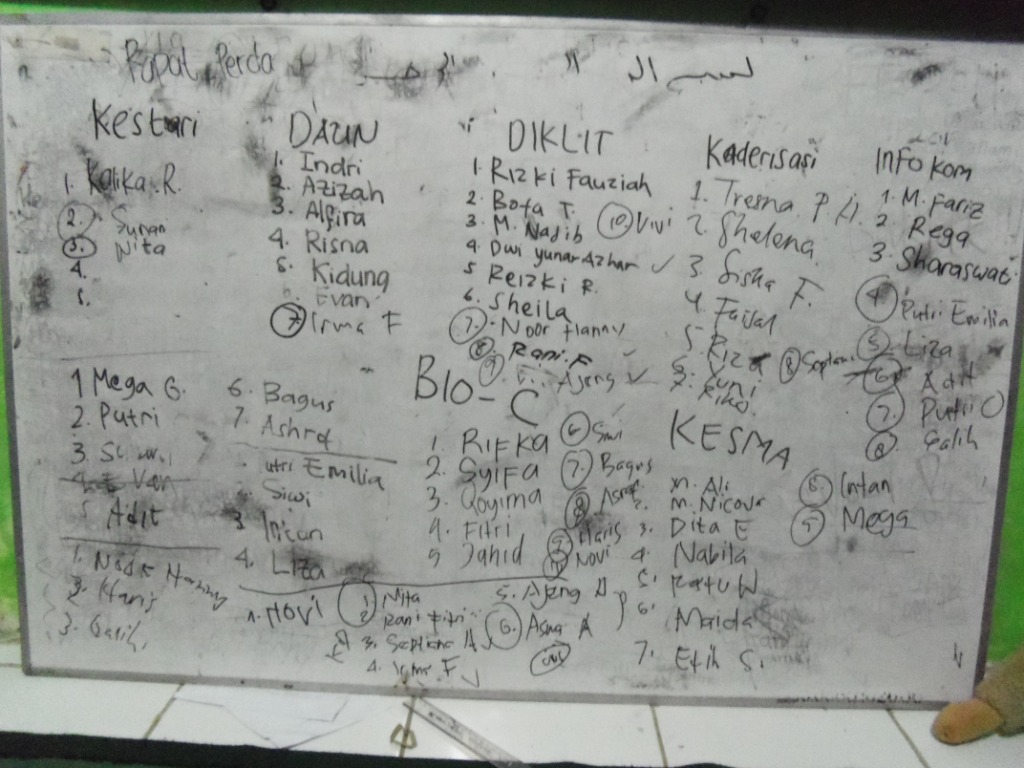 Rapat Perda
Kestari
1. Kalika R.
2. Sunan
3. Nita
4.
5.
DAZUN
1. Indri
2. Azizah
3. Algira
4. Risna
5. Kidung
Evan
7 Irma F
DIKLIT
1. Rizki Fauziah
2. Bota T.
3. M. Nadjib
4. Dwi yunar Azhar ✓
5 Reizki R.
6. Sheila
7. Noor Hanny
8. Rani F ✓
9. Ajeng ✓
10. Vivi
Kaderisasi
1. Tresna P
2. Shelena
3. Siska F.
4. Faisal
5. Riz
6. Yuni
7. Kiki
8 Septian
Infokom
1. M. Fariz
2. Rega
3. Sharaswati
4. Putri Emilia
5. Liza
6. Adit
7. Putri O
8. Galih
1 Mega G.
2. Putri
3.
4. Van
5. Adit
6. Bagus
7. Ashraf
utri Emilia
Siwi
3 Intan
4. Liza
BIO-C
1. RIFKA
2. Syifa
3. Qoyima
4. Fitri
5 Jahid
6 Siwi
7. Bagus
8 Asraf
9 Haris
Novi
KESMA
M. Ali
2. M. Nicova
3. Dita E
4. Nabila
5. Ratu W
6. Maida
7. Efih S.
8. Intan
9 Mega
1. Noor Hanny
2. Haris
3. Galih
1. Novi
1 Nita
2 Rani Fitri
3. Septiana A
4. Irma F ✓
5. Ajeng D
6. Asma A